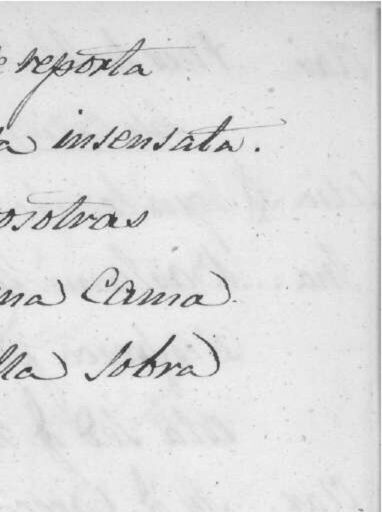 e reporta
a insensata.
osotras
na cama
lla sobra